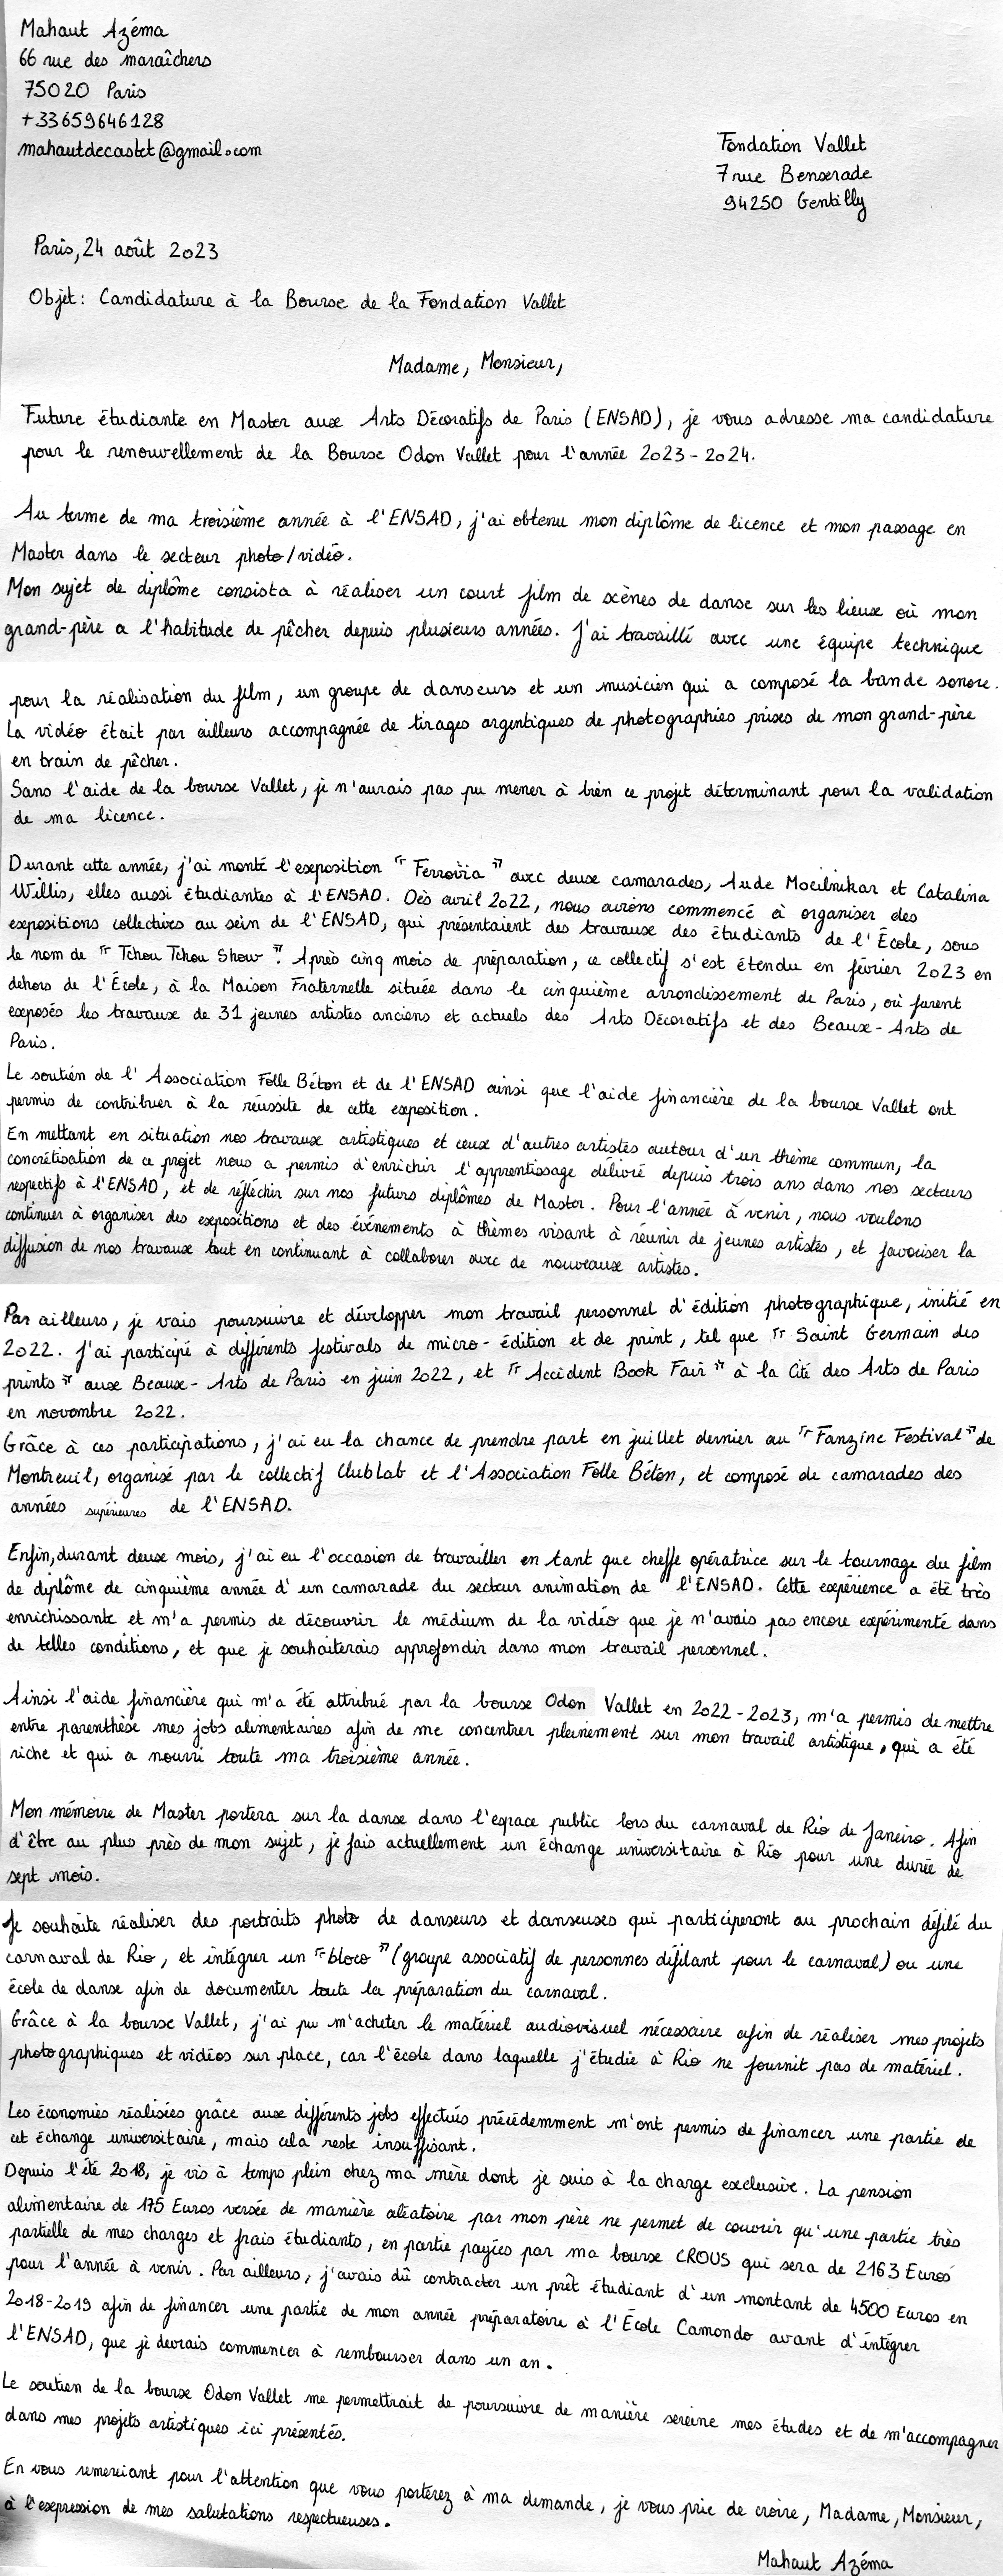 Mahaut Azéma
66 rue des maraîchers
75020 Paris
+33659646128
mahautdecastet@gmail.com
Fondation Vallet
7 rue Benserade
94250 Gentilly
Paris, 24 août 2023
Objet : Candidature à la Bourse de la Fondation Vallet
Madame, Monsieur,
Future étudiante en Master aux Arts Décoratifs de Paris (ENSAD), je vous adresse ma candidature
pour le renouvellement de la Bourse Odon Vallet pour l'année 2023-2024.
Au terme de ma troisième année à l'ENSAD, j'ai obtenu mon diplôme de licence et mon passage en
Master dans le secteur photo/vidéo.
Mon sujet de diplôme consista à réaliser un court film de scènes de danse sur les lieux où mon
grand-père a l'habitude de pêcher depuis plusieurs années. J'ai travaillé avec une équipe technique
pour la réalisation du film, un groupe de danseurs et un musicien qui a composé la bande sonore.
La vidéo était par ailleurs accompagnée de tirages argentiques de photographies prises de mon grand-père
en train de pêcher.
Sans l'aide de la bourse Vallet, je n'aurais pas pu mener à bien ce projet déterminant pour la validation
de ma licence.
Durant cette année, j'ai monté l'exposition "Ferrovia" avec deux camarades, Aude Mocilnikar et Catalina
Willis, elles aussi étudiantes à l'ENSAD. Dès avril 2022, nous avions commencé à organiser des
expositions collectives au sein de l'ENSAD, qui présentaient des travaux des étudiants de l'École, sous
le nom de "Tchou Tchou Show". Après cinq mois de préparation, ce collectif s'est étendu en février 2023 en
dehors de l'École, à la Maison Fraternelle située dans le cinquième arrondissement de Paris, où furent
exposés les travaux de 31 jeunes artistes anciens et actuels des Arts Décoratifs et des Beaux-Arts de
Paris.
Le soutien de l'Association Folle Béton et de l'ENSAD ainsi que l'aide financière de la bourse Vallet ont
permis de contribuer à la réussite de cette exposition.
En mettant en situation nos travaux artistiques et ceux d'autres artistes autour d'un thème commun, la
concrétisation de ce projet nous a permis d'enrichir l'apprentissage délivré depuis trois ans dans nos secteurs
respectifs à l'ENSAD, et de réfléchir sur nos futurs diplômes de Master. Pour l'année à venir, nous voulons
continuer à organiser des expositions et des événements à thèmes visant à réunir de jeunes artistes, et favoriser la
diffusion de nos travaux tout en continuant à collaborer avec de nouveaux artistes.
Par ailleurs, je vais poursuivre et développer mon travail personnel d'édition photographique, initié en
2022. J'ai participé à différents festivals de micro-édition et de print, tel que "Saint Germain des
prints" aux Beaux-Arts de Paris en juin 2022, et "Accident Book Fair" à la Cité des Arts de Paris
en novembre 2022.
Grâce à ces participations, j'ai eu la chance de prendre part en juillet dernier au "Fanzine Festival" de
Montreuil, organisé par le collectif ClubLab et l'Association Folle Béton, et composé de camarades des
années supérieures de l'ENSAD.
Enfin, durant deux mois, j'ai eu l'occasion de travailler en tant que cheffe opératrice sur le tournage du film
de diplôme de cinquième année d'un camarade du secteur animation de l'ENSAD. Cette expérience a été très
enrichissante et m'a permis de découvrir le médium de la vidéo que je n'avais pas encore expérimenté dans
de telles conditions, et que je souhaiterais approfondir dans mon travail personnel.
Ainsi l'aide financière qui m'a été attribué par la bourse Odon Vallet en 2022-2023, m'a permis de mettre
entre parenthèse mes jobs alimentaires afin de me concentrer pleinement sur mon travail artistique, qui a été
riche et qui a nourri toute ma troisième année.
Mon mémoire de Master portera sur la danse dans l'espace public lors du carnaval de Rio de Janeiro. Afin
d'être au plus près de mon sujet, je fais actuellement un échange universitaire à Rio pour une durée de
sept mois.
Je souhaite réaliser des portraits photo de danseurs et danseuses qui participeront au prochain défilé du
carnaval de Rio, et intégrer un "bloco" (groupe associatif de personnes défilant pour le carnaval) ou une
école de danse afin de documenter toute la préparation du carnaval.
Grâce à la bourse Vallet, j'ai pu m'acheter le matériel audiovisuel nécessaire afin de réaliser mes projets
photographiques et vidéos sur place, car l'école dans laquelle j'étudie à Rio ne fournit pas de matériel.
Les économies réalisées grâce aux différents jobs effectués précédemment m'ont permis de financer une partie de
cet échange universitaire, mais cela reste insuffisant.
Depuis l'été 2018, je vis à temps plein chez ma mère dont je suis à la charge exclusive. La pension
alimentaire de 175 Euros versée de manière aléatoire par mon père ne permet de couvrir qu'une partie très
partielle de mes charges et frais étudiants, en partie payées par ma bourse CROUS qui sera de 2163 Euros
pour l'année à venir. Par ailleurs, j'avais dû contracter un prêt étudiant d'un montant de 4500 Euros en
2018-2019 afin de financer une partie de mon année préparatoire à l'École Camondo avant d'intégrer
l'ENSAD, que je devrais commencer à rembourser dans un an.
Le soutien de la bourse Odon Vallet me permettrait de poursuivre de manière sereine mes études et de m'accompagner
dans mes projets artistiques ici présentés.
En vous remerciant pour l'attention que vous porterez à ma demande, je vous prie de croire, Madame, Monsieur,
à l'expression de mes salutations respectueuses.
Mahaut Azéma